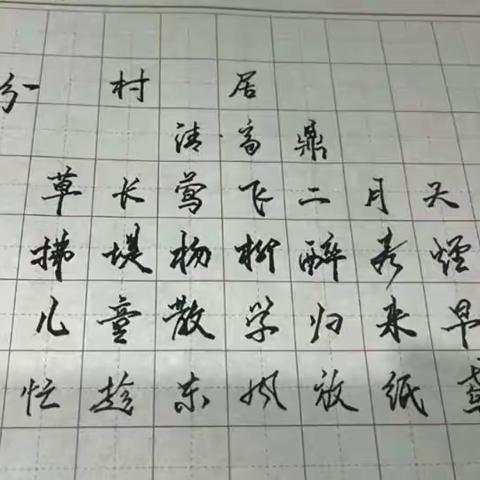 村居
清·高鼎
草长莺飞二月天
拂堤杨柳醉春烟
儿童散学归来早
忙趁东风放纸鸢